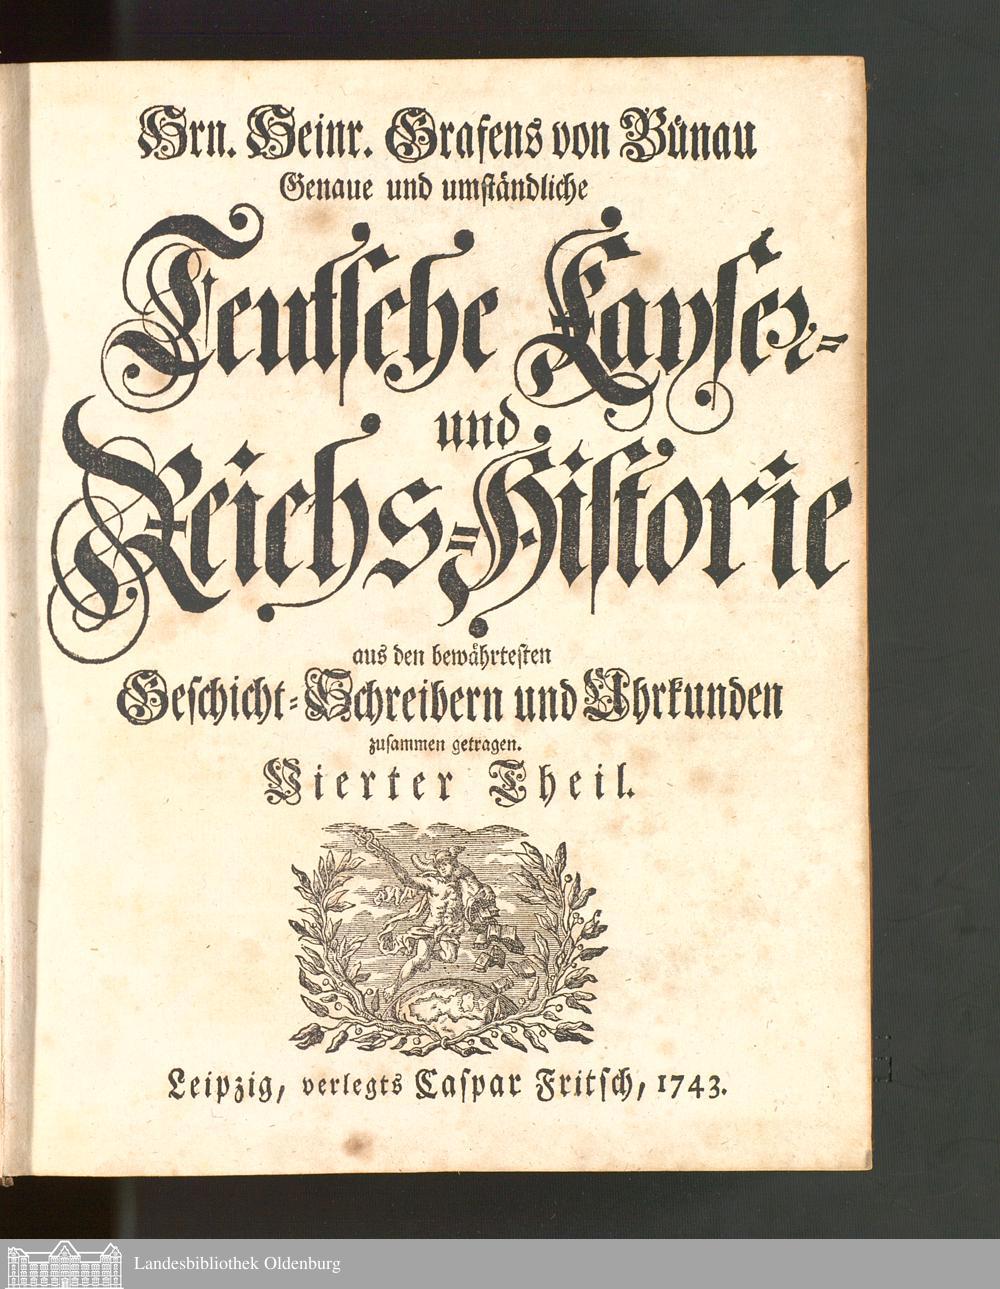 Hrn. Heinr. Grafens von Bünau
Genaue und umständliche
Teutsche Kayser-
und
Reichs-Historie
aus den bewährtesten
Geschicht-Schreibern und Uhrkunden
zusammen getragen.
Vierter Theil.
Leipzig, verlegts Caspar Fritsch, 1743.
Landesbibliothek Oldenburg